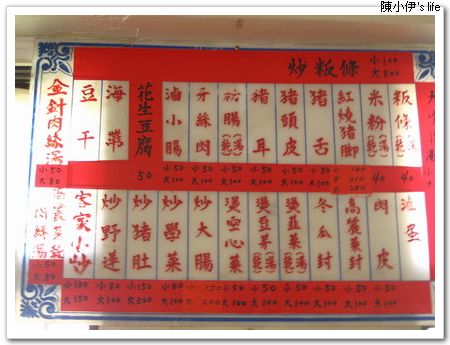 陳小伊's life
炒粄條
小100
大200
粄條(湯)(乾)
40
米粉(湯)(乾)
40
紅燒猪脚
猪舌
小50
大100
猪頭皮
小50
大100
猪耳
小50
大100
粉腸(乾)(湯)
小50
大100
牙絲肉
小50
大100
滷小腸
小50
大100
花生豆腐
50
海帶
豆干
金針肉絲湯
小50
大80
滷蛋
肉皮
高麗菜封
小50
大100
冬瓜封
小50
大100
燙韭菜(乾)(湯)
小50
大100
燙豆芽(乾)(湯)
小50
大100
燙空心菜
小50
大100
炒大腸
小150
炒猪肚
小150
大200
炒野蓮
小80
大100
小炒
小100
大150
肉絲湯
小50
大80